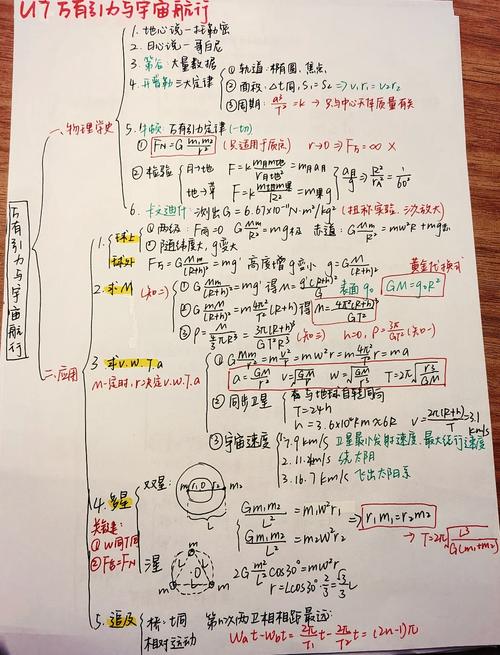 U7 万有引力与宇宙航行
万有引力与宇宙航行
一、物理学史
1. 地心说—托勒密
2. 日心说—哥白尼
3. 第谷:大量数据
4. 开普勒三大定律
① 轨道:椭圆、焦点
② 面积:Δt同, S₁=S₂ ⇒ v₁r₁=v₂r₂
③ 周期: a³/T²=k → 只与中心天体质量有关
5. 牛顿:万有引力定律(一切)
① F万=G m₁m₂/r² (只适用于质点) r→0 ⇒ F万=∞ ×
② 检验
月→地 F=k m月m地/r月地²=m月a月
地→苹 F=k m地m果/R²=m果g
a月/g ⇒ R²/r² = 1/60²
6. 卡文迪什:测出G=6.67×10⁻¹¹N·m²/kg² (扭秤实验、三次放大)
二、应用
1. 球上
① 两极: F向=0 G Mm/R²=mg极 赤道: G Mm/R²=mw²R+mg赤
② 随纬度大, g变大
球外 F万=G Mm/(R+h)²=mg' 高度增g变小 g=G M/(R+h)²
黄金代换式
2. 求M (知二)
① G Mm/(R+h)²=mg' 得M=g'(R+h)²/G 表面g₀ GM=g₀R²
② G Mm/(R+h)²=m 4π²/T²(R+h) 得 M=4π²(R+h)³/GT²
③ ρ=M/(4/3πR³)=3π(R+h)³/GT²R³ (知三) h=0, ρ=3π/GT² (知一)
3. 求v.w.T.a
M一定时, r决定v.w.T.a
① G Mm/r²=m v²/r=mw²r=m 4π²/T² r=ma
a=GM/r² v=√GM/r w=√GM/r³ T=2π√r³/GM
② 同步卫星
T=24h
h=3.6×10⁴km≈6R v=2π(R+h)/T=3.1km/s
③ 宇宙速度
1. 7.9km/s 卫星最小发射速度、最大运行速度
2. 11.2km/s 绕太阳
3. 16.7km/s 飞出太阳系
4. 多星
关键:
① w同T同
② F合=Fn
双星:
m₁ r₁ O r₂ m₂
L
Gm₁m₂/L²=m₁w²r₁
Gm₁m₂/L²=m₂w²r₂
⇒ r₁m₁=r₂m₂
→ T=2π√L³/G(m₁+m₂)
三星
m
m
m
2G m²/L² cos30°=mw²r
r=Lcos30°·2/3=√3/3 L
5. 追及
桥:t同
相对运动
第n次两卫相距最远:
wat-wbt=2π/T₁ t-2π/T₂ t=(2n-1)π